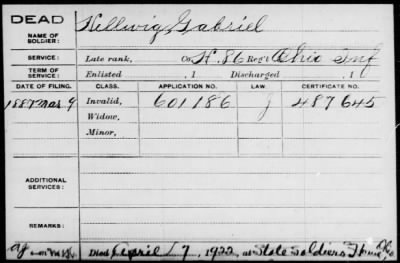 DEAD
NAME OF SOLDIER: Hellwig Gabriel
SERVICE: Late rank, Co. H, 86 Reg't Ohio Inf
TERM OF SERVICE: Enlisted , 1 Discharged , 1
DATE OF FILING. CLASS. APPLICATION NO. LAW. CERTIFICATE NO.
1887 Mar 9 Invalid, 601186 J 487645
Widow,
Minor,
ADDITIONAL SERVICES:
REMARKS:
Died April 7, 1922, at State Soldiers Home Ohio